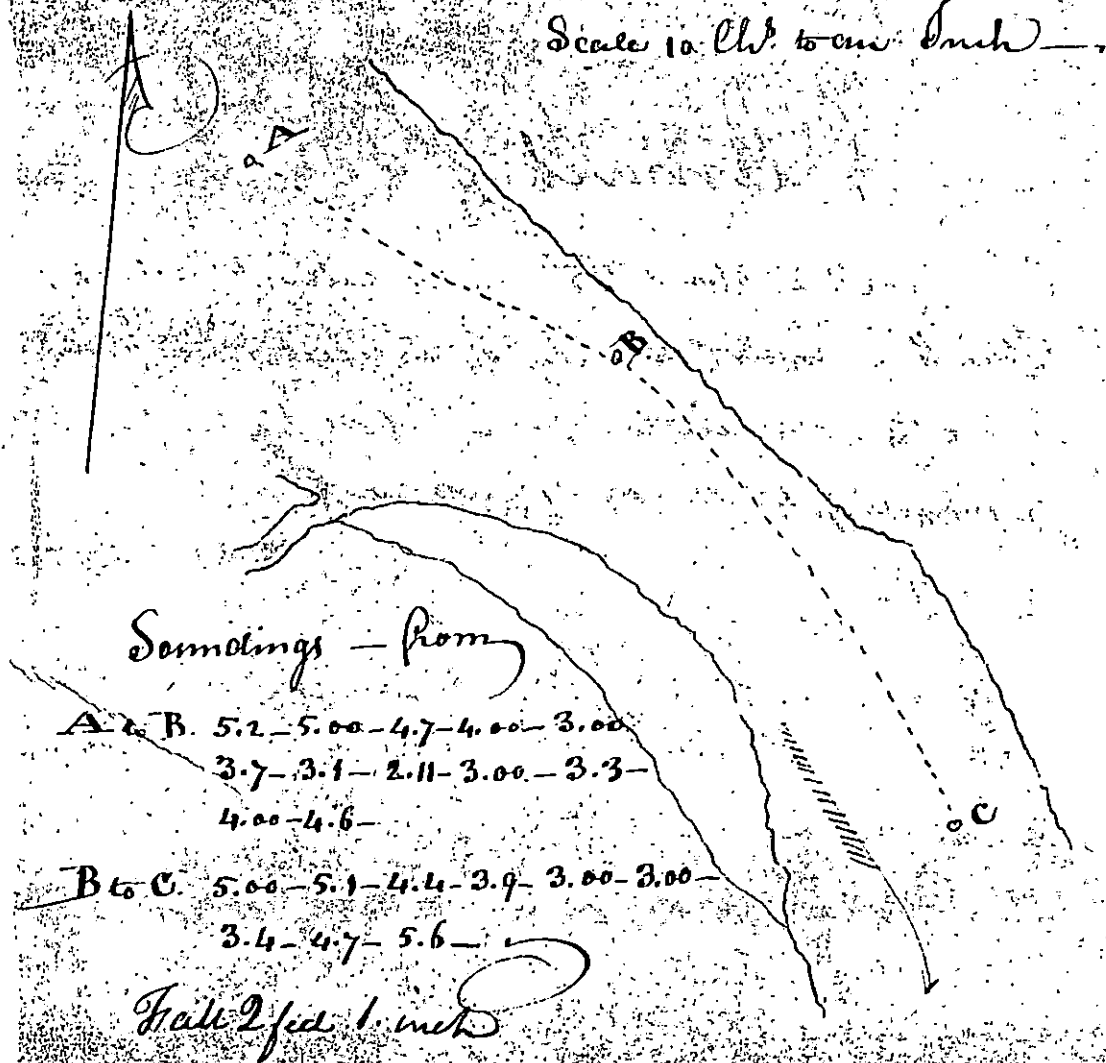 Scale 10 Chs. to an Inch
A
B
C
Soundings — from
A to B. 5.2 – 5.00 – 4.7 – 4.00 – 3.00
3.7 – 3.1 – 2.11 – 3.00 – 3.3 –
4.00 – 4.6 –
B to C. 5.00 – 5.1 – 4.4 – 3.9 – 3.00 – 3.00 –
3.4 – 4.7 – 5.6 –
Fall 2 feet 1 inch